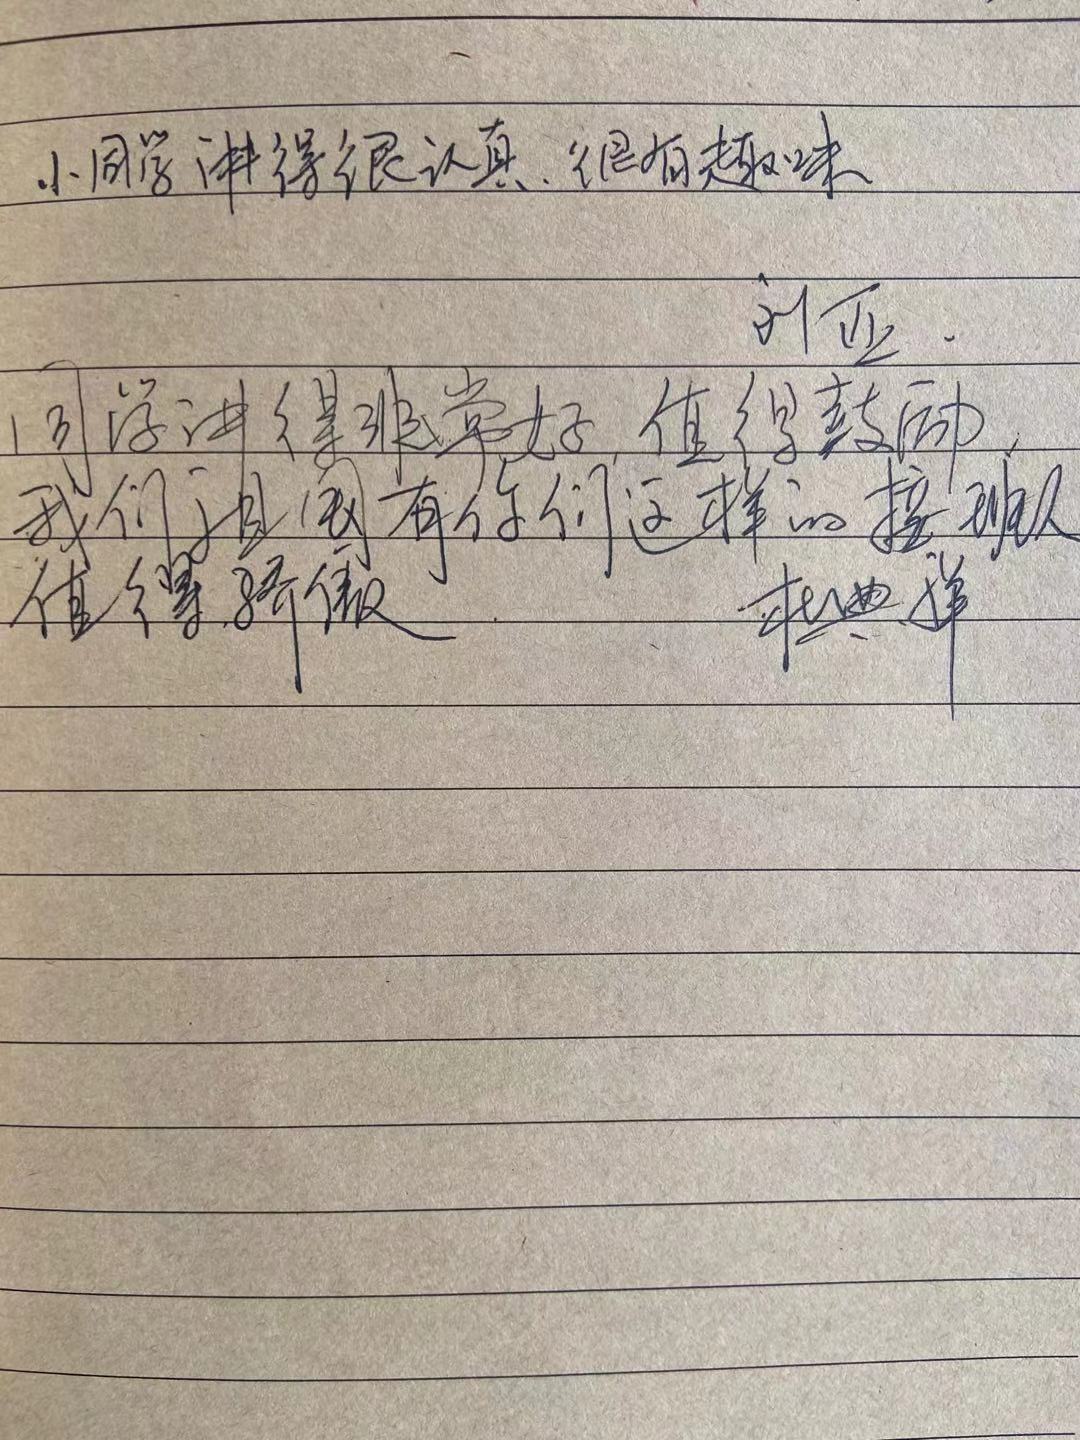 小同学讲得很认真、很有趣味
刘亚.
同学讲得非常好,值得鼓励,
我们祖国有你们这样的接班人
值得骄傲 杜典祥